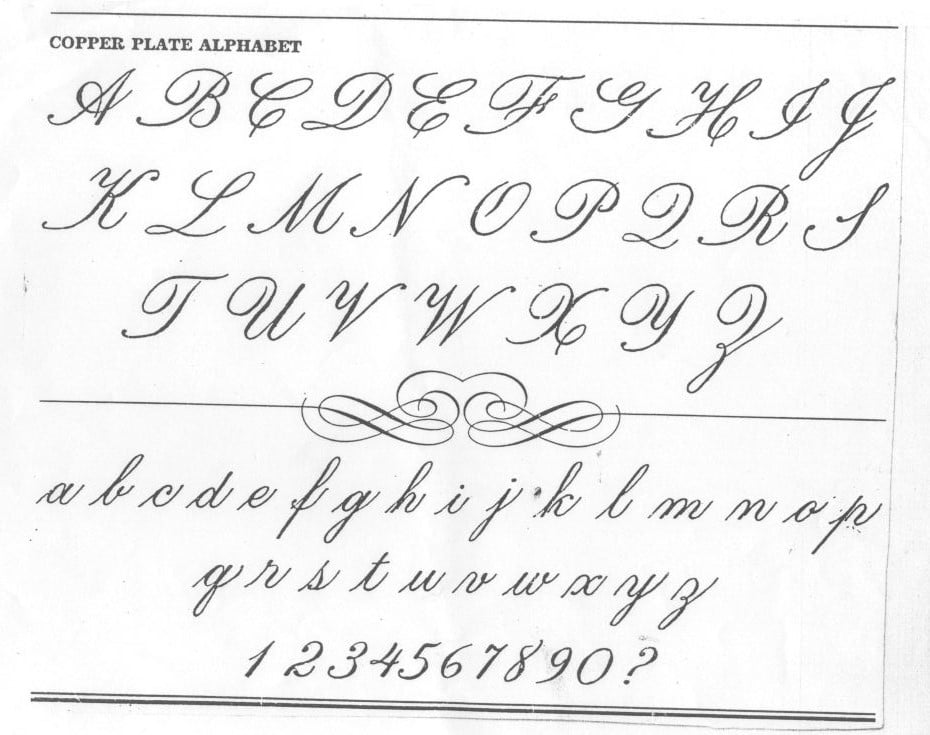 COPPER PLATE ALPHABET
A B C D E F G H I J
K L M N O P Q R S
T U V W X Y Z
a b c d e f g h i j k l m n o p
q r s t u v w x y z
1 2 3 4 5 6 7 8 9 0 ?